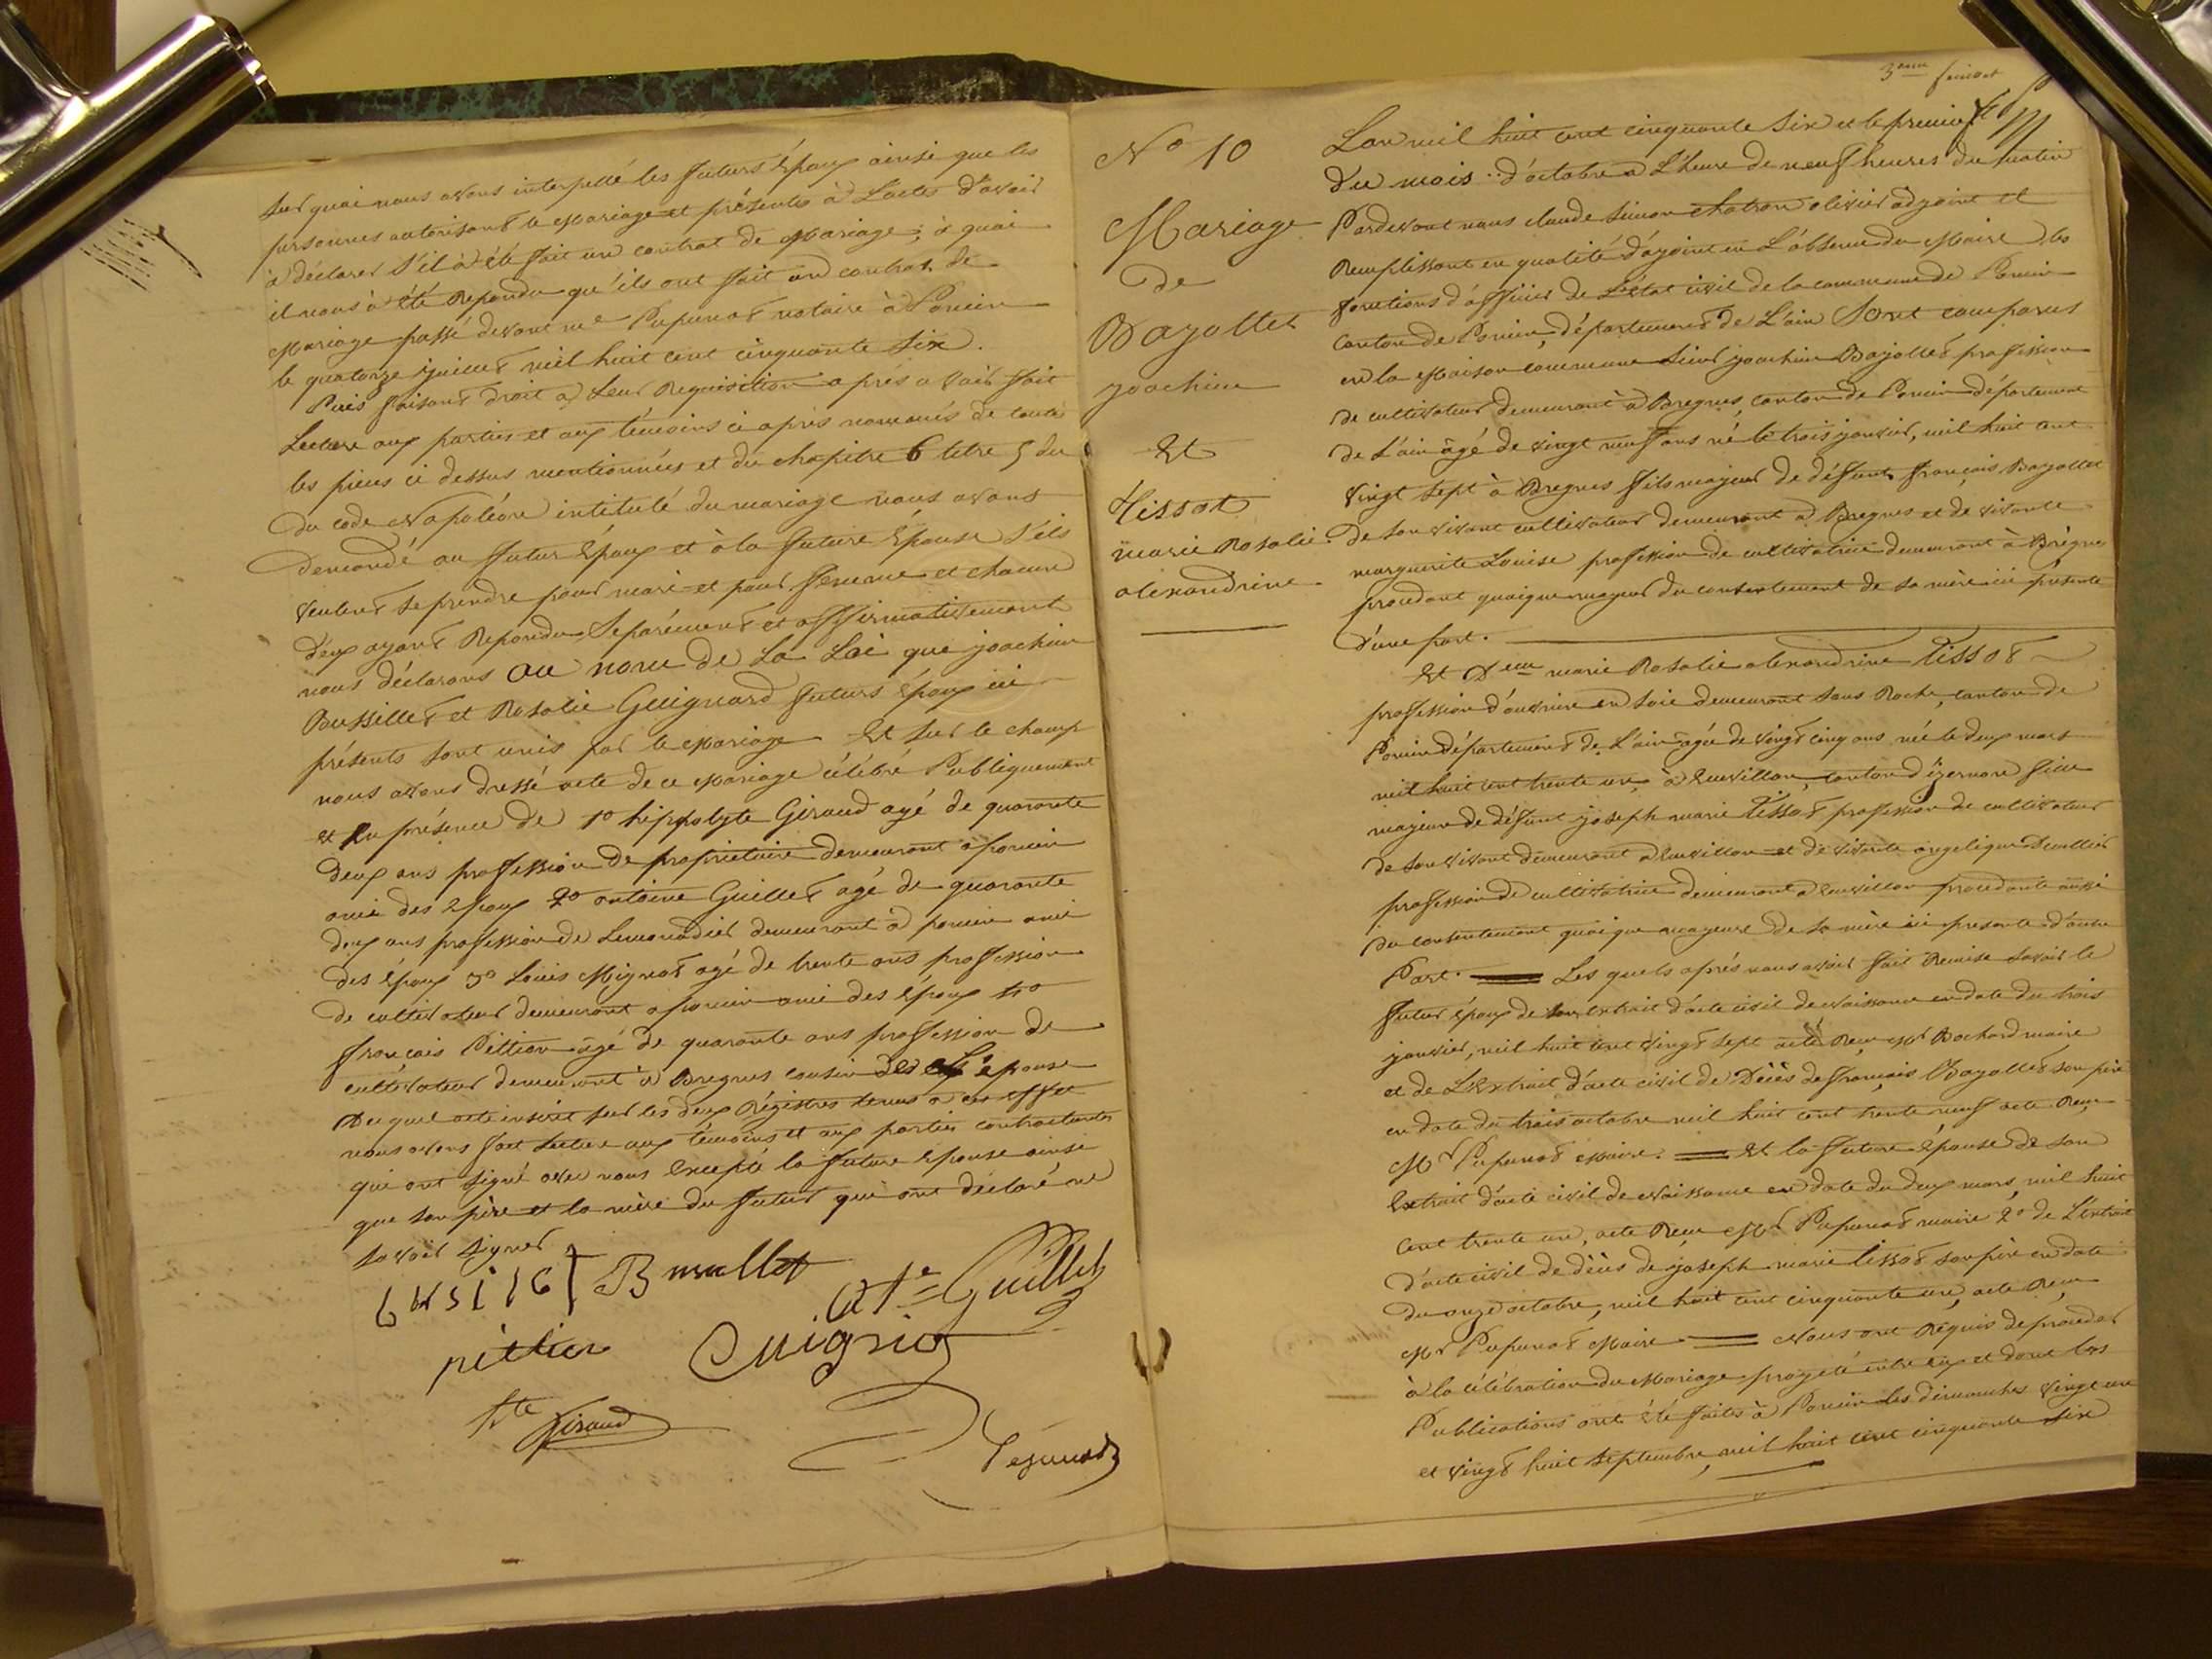 Sur quoi nous avons interpellé les futurs Epoux ainsi que les
personnes autorisant le Mariage et présentes à Lactes d'avoir
à déclarer S'il à été fait un contrat de Mariage; à quoi
il nous à été Repondu qu'ils ont fait un contrat de
Mariage passé devant me Pupunat notaire à Poncin
le quatorze juillet mil huit cent cinquante Six.
Puis faisant droit à Leur Requisition après avoir fait
Lecture aux parties et aux témoins ci après nommés de toutes
les pieces ci dessus mentionnées et du chapitre 6 titre 5 du
Du Code Napoléon intitulé du mariage nous avons
Demandé au futur Epoux et à la future Epouse S'ils
veulent se prendre pour mari et pour femme et chacun
d'eux ayant Repondu Séparément et affirmativement
nous déclarons au nom de La Loi que joachim
Bussillet et Rosalie Guignard futurs Epoux ici
présents sont unis par le Mariage Et sur le champ
nous avons dressé acte de ce Mariage célébré Publiquement
et En présence de 1o hippolyte Giraud agé de quarante
deux ans profession de propriétaire demeurant à poncin
ami des Epoux 2o antoine Guillet agé de quarante
deux ans profession de Limonadier demeurant à poncin ami
des Epoux 3o Louis Mignot agé de trente ans profession
de cultivateur demeurant à poncin ami des Epoux 4o
françois Pittion agé de quarante ans profession de
cultivateur demeurant à Bregnes cousin de L'épouse
Du quel acte inscrit sur les deux Régistres tenus a cet effet
nous avons fait Lecture aux témoins et aux parties contractantes
qui ont signé avec nous Excepté la future Epouse ainsi
que son père et la mère du futur qui ont déclaré ne
savoir signer
Ate Guillet
pittion Mignot
hte Giraud
No 10
Mariage
de
Bazollet
joachim
Et
Tissot
marie Rosalie
alexandrine
Lan mil huit cent cinquante Six et le premier
Du mois d'octobre à L'heure de neuf heures du matin
Pardevant nous claude Simon chatron olivier adjoint et
Remplissant en qualité d'ajoint en L'absence du Maire les
fonctions d'officier de L'etat civil de la commune de Poncin
canton de Poncin, département de L'ain Sont comparus
en la Maison commune Sieur joachim Bazollet profession
de cultivateur demeurant à Bregnes, canton de Poncin département
de L'ain âgé de vingt neuf ans né le trois janvier, mil huit cent
vingt sept à Bregnes fils majeur de défunt françois Bazollet
de Son vivant cultivateur demeurant à Bregnes et de vivante
marguerite Louise profession de cultivatrice demeurant à Brégnes
procedant quoique majeur du consentement de sa mère ici présente
d'une part.
Et Delle marie Rosalie alexandrine Tissot
profession d'ouvrière en Soie demeurant sous Roche, canton de
Poncin département de L'ain agée de vingt cinq ans née le deux mars
mil huit cent trente un, à Leuvillon, canton d'izernore fille
majeure de défunt joseph marie Tissot profession de cultivateur
de Son vivant demeurant à Leuvillon et de vivante angelique
profession de cultivatrice demeurant à Leuvillon procedante aussi
du consentement quoique majeure de Sa mère ici presente d'autre
Part. Les quels après nous avoir fait Remise Savoir le
futur époux de Son extrait d'acte civil de Naissance en date du trois
janvier, mil huit cent vingt sept acte Reçu Mr Bochard maire
et de L'Extrait d'acte civil de Décès de françois Bazollet son père
en date du trois octobre mil huit cent trente neuf acte Reçu
Mr Pupunat Maire. Et la future épouse de Son
Extrait d'acte civil de Naissance en date du deux mars, mil huit
cent trente un, acte Reçu Mr Pupunat maire 2o de L'Extrait
d'acte civil de décès de joseph marie Tissot son père en date
du onze octobre, mil huit cent cinquante un, acte Reçu
Mr Pupunat Maire. Nous ont Réquis de procéder
à la célébration du Mariage projeté entre eux et dont Les
Publications ont été faites à Poncin les dimanches vingt un
et vingt huit Septembre, mil huit cent cinquante Six